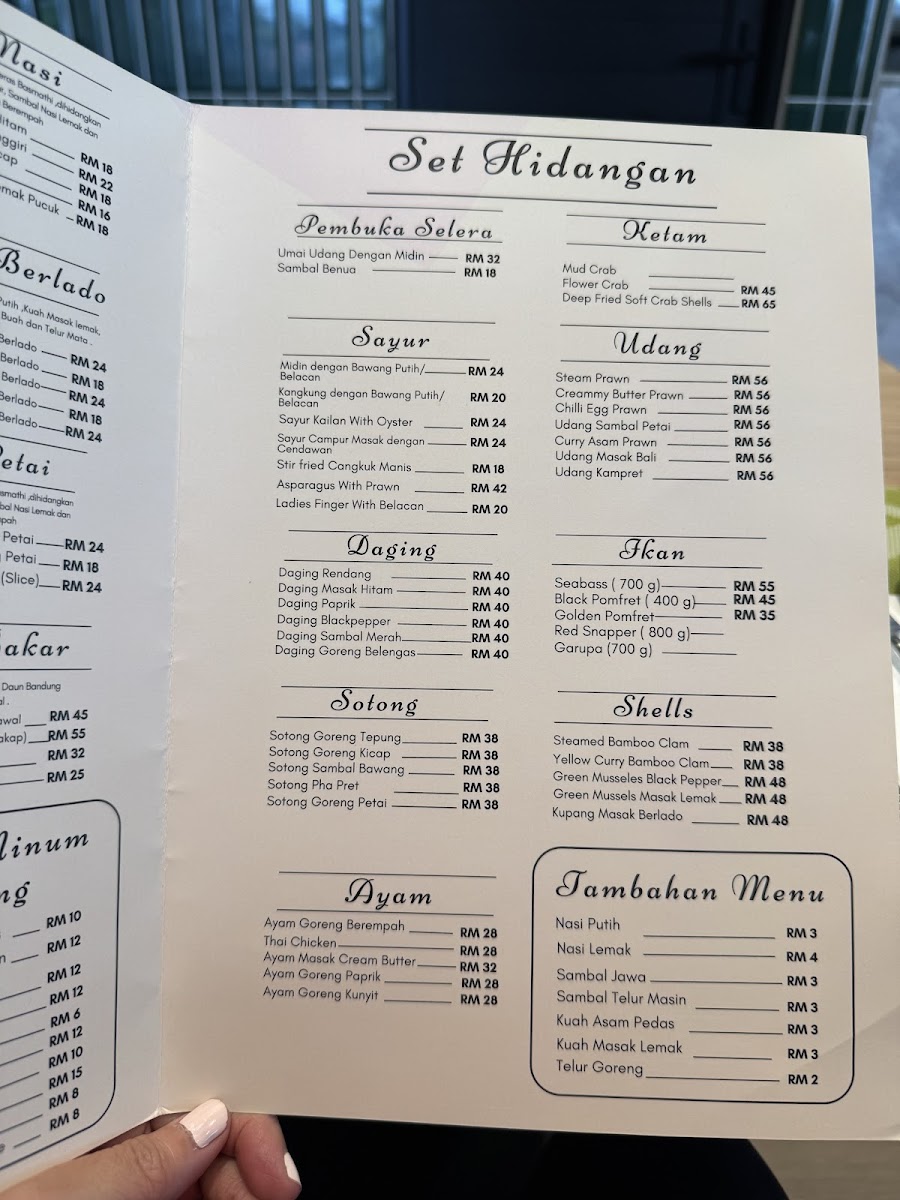 Nasi
eras Basmathi ,dihidangkan
r, Sambal Nasi Lemak dan
Berempah
Hitam RM 18
nggiri RM 22
cap RM 18
RM 16
mak Pucuk RM 18
Berlado
Putih ,Kuah Masak lemak,
Buah dan Telur Mata .
Berlado RM 24
Berlado RM 18
Berlado RM 24
Berlado RM 18
Berlado RM 24
Petai
smathi ,dihidangkan
bal Nasi Lemak dan
pah
Petai RM 24
Petai RM 18
(Slice) RM 24
akar
Daun Bandung
al .
awal RM 45
akap) RM 55
RM 32
RM 25
Minum
ng
RM 10
n RM 12
RM 12
RM 12
RM 6
RM 12
RM 10
RM 15
RM 8
RM 8
Set Hidangan
Pembuka Selera
Umai Udang Dengan Midin RM 32
Sambal Benua RM 18
Sayur
Midin dengan Bawang Putih/ RM 24
Belacan
Kangkung dengan Bawang Putih/ RM 20
Belacan
Sayur Kailan With Oyster RM 24
Sayur Campur Masak dengan RM 24
Cendawan
Stir fried Cangkuk Manis RM 18
Asparagus With Prawn RM 42
Ladies Finger With Belacan RM 20
Daging
Daging Rendang RM 40
Daging Masak Hitam RM 40
Daging Paprik RM 40
Daging Blackpepper RM 40
Daging Sambal Merah RM 40
Daging Goreng Belengas RM 40
Sotong
Sotong Goreng Tepung RM 38
Sotong Goreng Kicap RM 38
Sotong Sambal Bawang RM 38
Sotong Pha Pret RM 38
Sotong Goreng Petai RM 38
Ayam
Ayam Goreng Berempah RM 28
Thai Chicken RM 28
Ayam Masak Cream Butter RM 32
Ayam Goreng Paprik RM 28
Ayam Goreng Kunyit RM 28
Ketam
Mud Crab
Flower Crab RM 45
Deep Fried Soft Crab Shells RM 65
Udang
Steam Prawn RM 56
Creammy Butter Prawn RM 56
Chilli Egg Prawn RM 56
Udang Sambal Petai RM 56
Curry Asam Prawn RM 56
Udang Masak Bali RM 56
Udang Kampret RM 56
Ikan
Seabass ( 700 g) RM 55
Black Pomfret ( 400 g) RM 45
Golden Pomfret RM 35
Red Snapper ( 800 g)
Garupa (700 g)
Shells
Steamed Bamboo Clam RM 38
Yellow Curry Bamboo Clam RM 38
Green Musseles Black Pepper RM 48
Green Mussels Masak Lemak RM 48
Kupang Masak Berlado RM 48
Tambahan Menu
Nasi Putih RM 3
Nasi Lemak RM 4
Sambal Jawa RM 3
Sambal Telur Masin RM 3
Kuah Asam Pedas RM 3
Kuah Masak Lemak RM 3
Telur Goreng RM 2